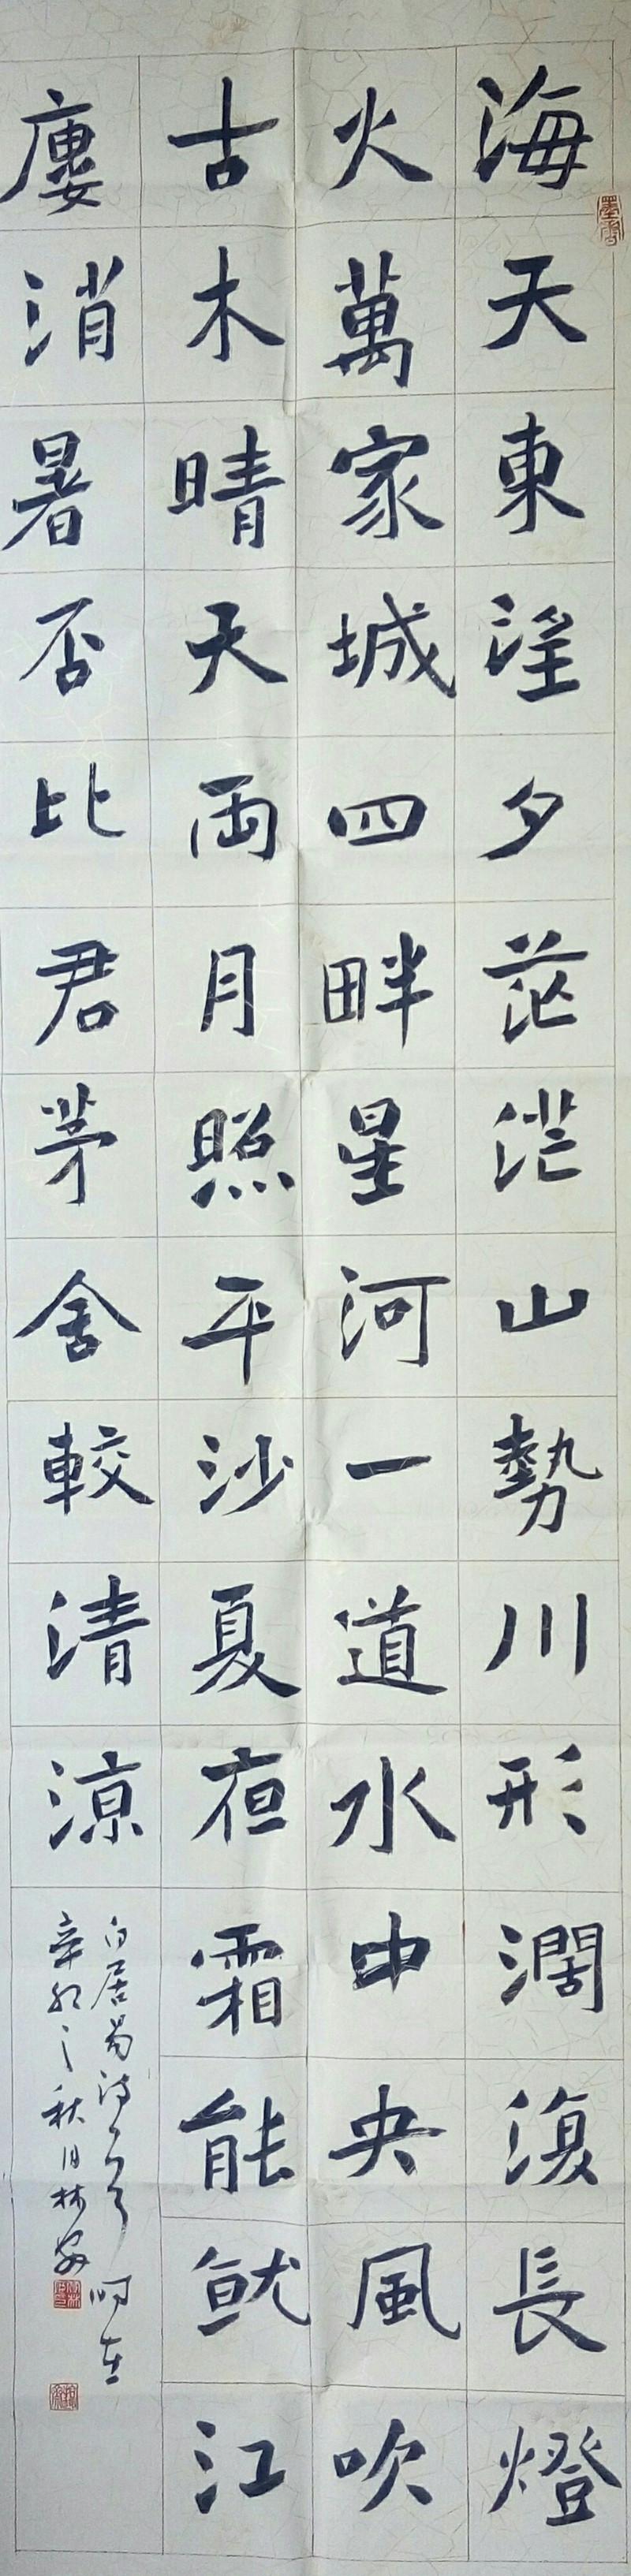 海天東望夕茫茫山勢川形濶復長燈
火萬家城四畔星河一道水中央風吹
古木晴天雨月照平沙夏夜霜能就江
廔消暑否比君茅舍較清涼
白居易诗一首 时在
辛丑之秋月林